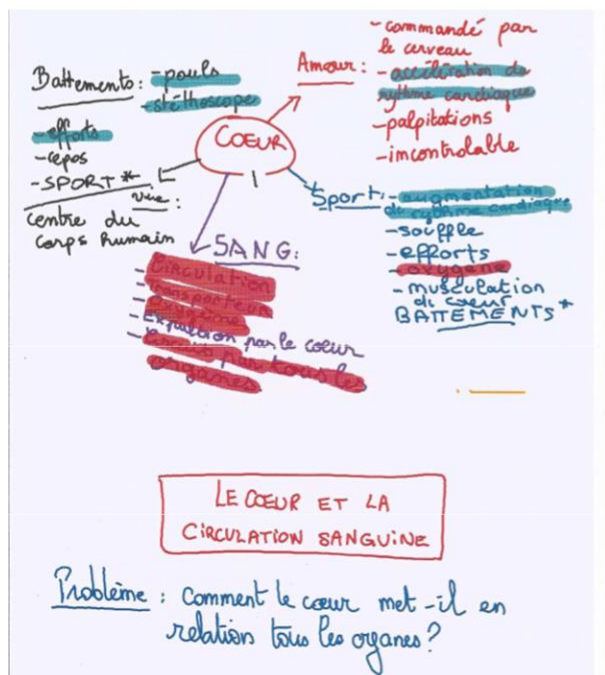 Battements : - pouls
- stéthoscope
- efforts
- repos
- SPORT *
COEUR
Amour : - commandé par
le cerveau
- accélération du
rythme cardiaque
- palpitations
- incontrolable
Vie :
centre du
corps humain
Sport : - augmentation
du rythme cardiaque
- souffle
- efforts
- oxygène
- musculation
du coeur
BATTEMENTS *
SANG :
- Circulation
- transporteur
- oxygène
- Expulsion par le coeur
- circuits par tous les
organes
LE COEUR ET LA
CIRCULATION SANGUINE
Problème : comment le cœur met-il en
relation tous les organes ?